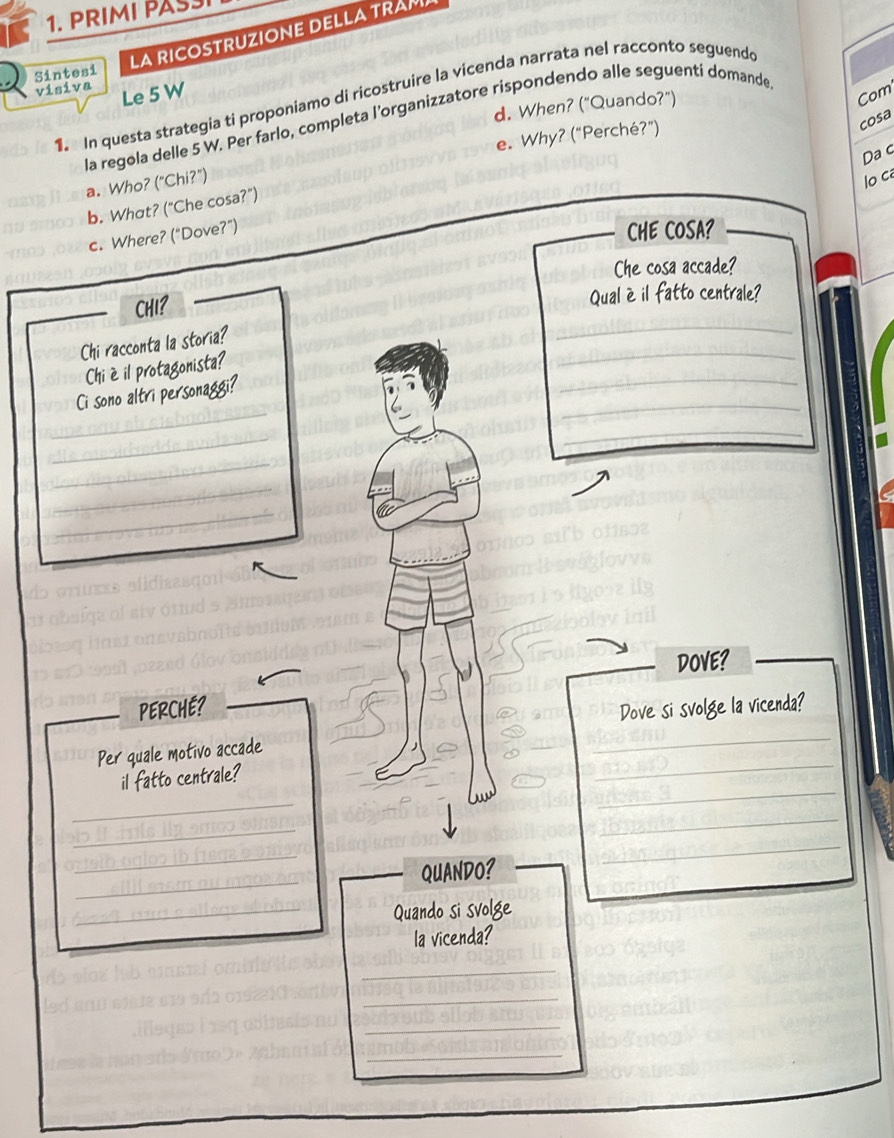 1. PRIMI PASSI
LA RICOSTRUZIONE DELLA TRAMA
Sintesi
visiva
Le 5 W
1. In questa strategia ti proponiamo di ricostruire la vicenda narrata nel racconto seguendo
la regola delle 5 W. Per farlo, completa l'organizzatore rispondendo alle seguenti domande.
a. Who? ("Chi?")
b. What? ("Che cosa?")
c. Where? ("Dove?")
d. When? ("Quando?")
e. Why? ("Perché?")
Com
cosa
Da c
lo ca
CHI?
Chi racconta la storia?
Chi è il protagonista?
Ci sono altri personaggi?
CHE COSA?
Che cosa accade?
Qual è il fatto centrale?
PERCHÉ?
Per quale motivo accade
il fatto centrale?
DOVE?
Dove si svolge la vicenda?
QUANDO?
Quando si svolge
la vicenda?